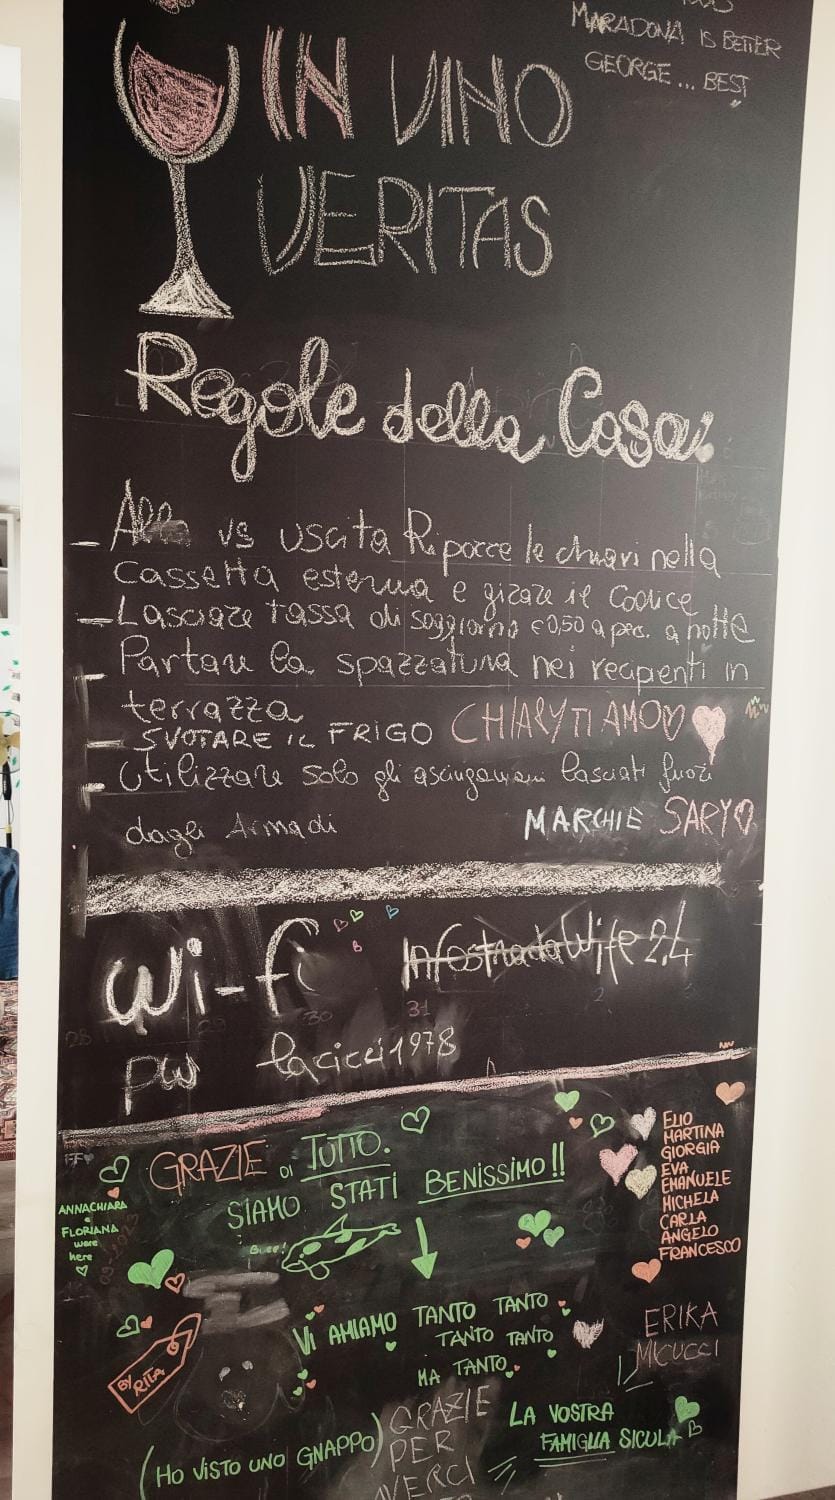 MARADONA IS BETTER
GEORGE ... BEST
IN VINO
VERITAS
Regole della Casa
- Alla vs uscita Riporre le chiavi nella
cassetta esterna e girare il codice
- Lasciare tassa di soggiorno €0,50 a per. a notte
- Portare la spazzatura nei recipienti in
terrazza
- SVUOTARE IL FRIGO
CHIARY TI AMO
- Utilizzare solo gli asciugamani lasciati fuori
dagli Armadi
MARCHIE SARY
Wi-fi InfostradaWife 2,4
31
pw lacicci1978
GRAZIE DI TUTTO.
SIAMO STATI BENISSIMO!!
ANNACHIARA
e
FLORIANA
were
here
ELIO
MARTINA
GIORGIA
EVA
EMANUELE
MICHELA
CARLA
ANGELO
FRANCESCO
VI AMIAMO TANTO TANTO
TANTO TANTO
MA TANTO
BY
RITA
ERIKA
MICUCCI
LA VOSTRA
FAMIGLIA SICULA
(HO VISTO UNO GNAPPO)
GRAZIE
PER
AVERCI